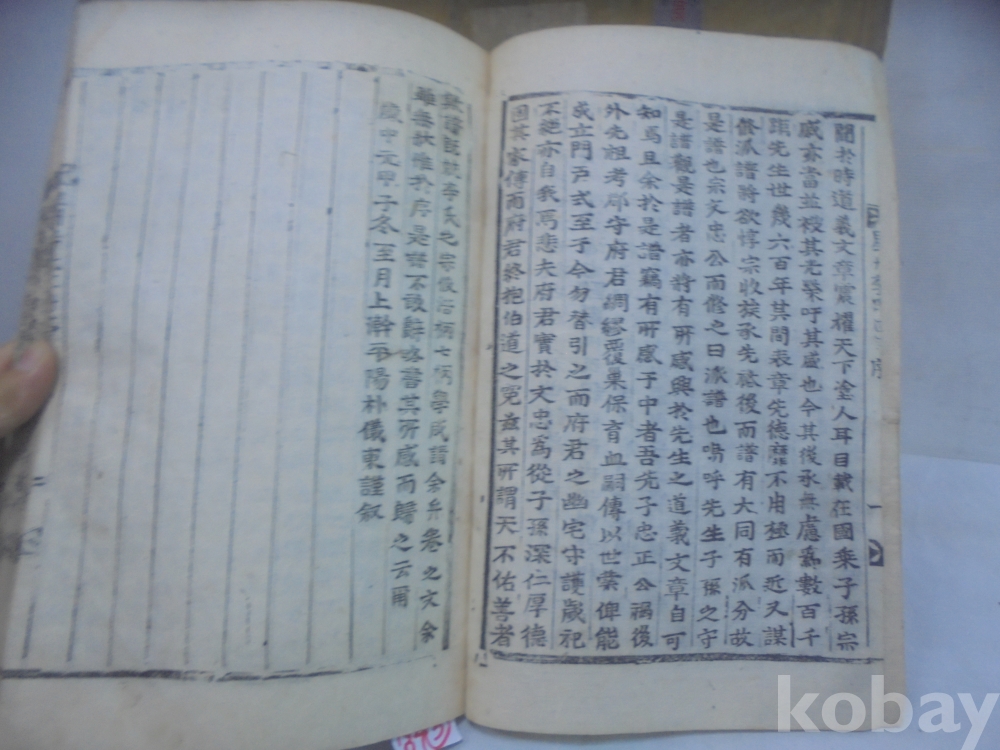 關於時道義文章震耀天下塗人耳目載在國乘子孫宗
戚亦當並被其光榮吁其盛也今其後承無慮爲數百千
距先生世幾六百年其間表章先德靡不用極而近又謀
修派譜將欲惇宗收族承先裕後而譜有大同有派分故
是譜也宗文忠公而修之曰派譜也嗚呼先生子孫之守
是譜觀是譜者亦將有所感興於先生之道義文章自可
知焉且余於是譜竊有所感于中者吾先子忠正公禍後
外先祖考郡守府君綢繆覆巢保育血嗣傳以世業俾能
成立門戶式至于今勿替引之而府君之幽宅守護歲祀
不絕亦自我焉悲夫府君實於文忠爲從子孫深仁厚德
因其家傳而府君終抱伯道之冤玆其所謂天不佑善者
譜 李氏之宗 炳七炳學 余弁卷之文余
雖無 於序是 不 書其所感而歸之云爾
歲 甲子冬至月上澣平陽朴儀東謹叙
序
一
kobay